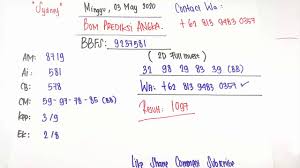 "Sydney"
Minggu, 03 May 2020
Contact Wa :
BOM PREDIKSI ANGKA.
+62 813 9483 0357
BBFS: 9237581
AM: 8719
[ 2D Full Invest ]
Ai: 581
32 98 29 83 39 (BB)
CB: 578
Wa: +62 813 9483 0357
CM: 59-97-78-85 (BB)
Result: 1097
Kpp: 3/9
EK: 2/8
Like Share Comment Subscribe